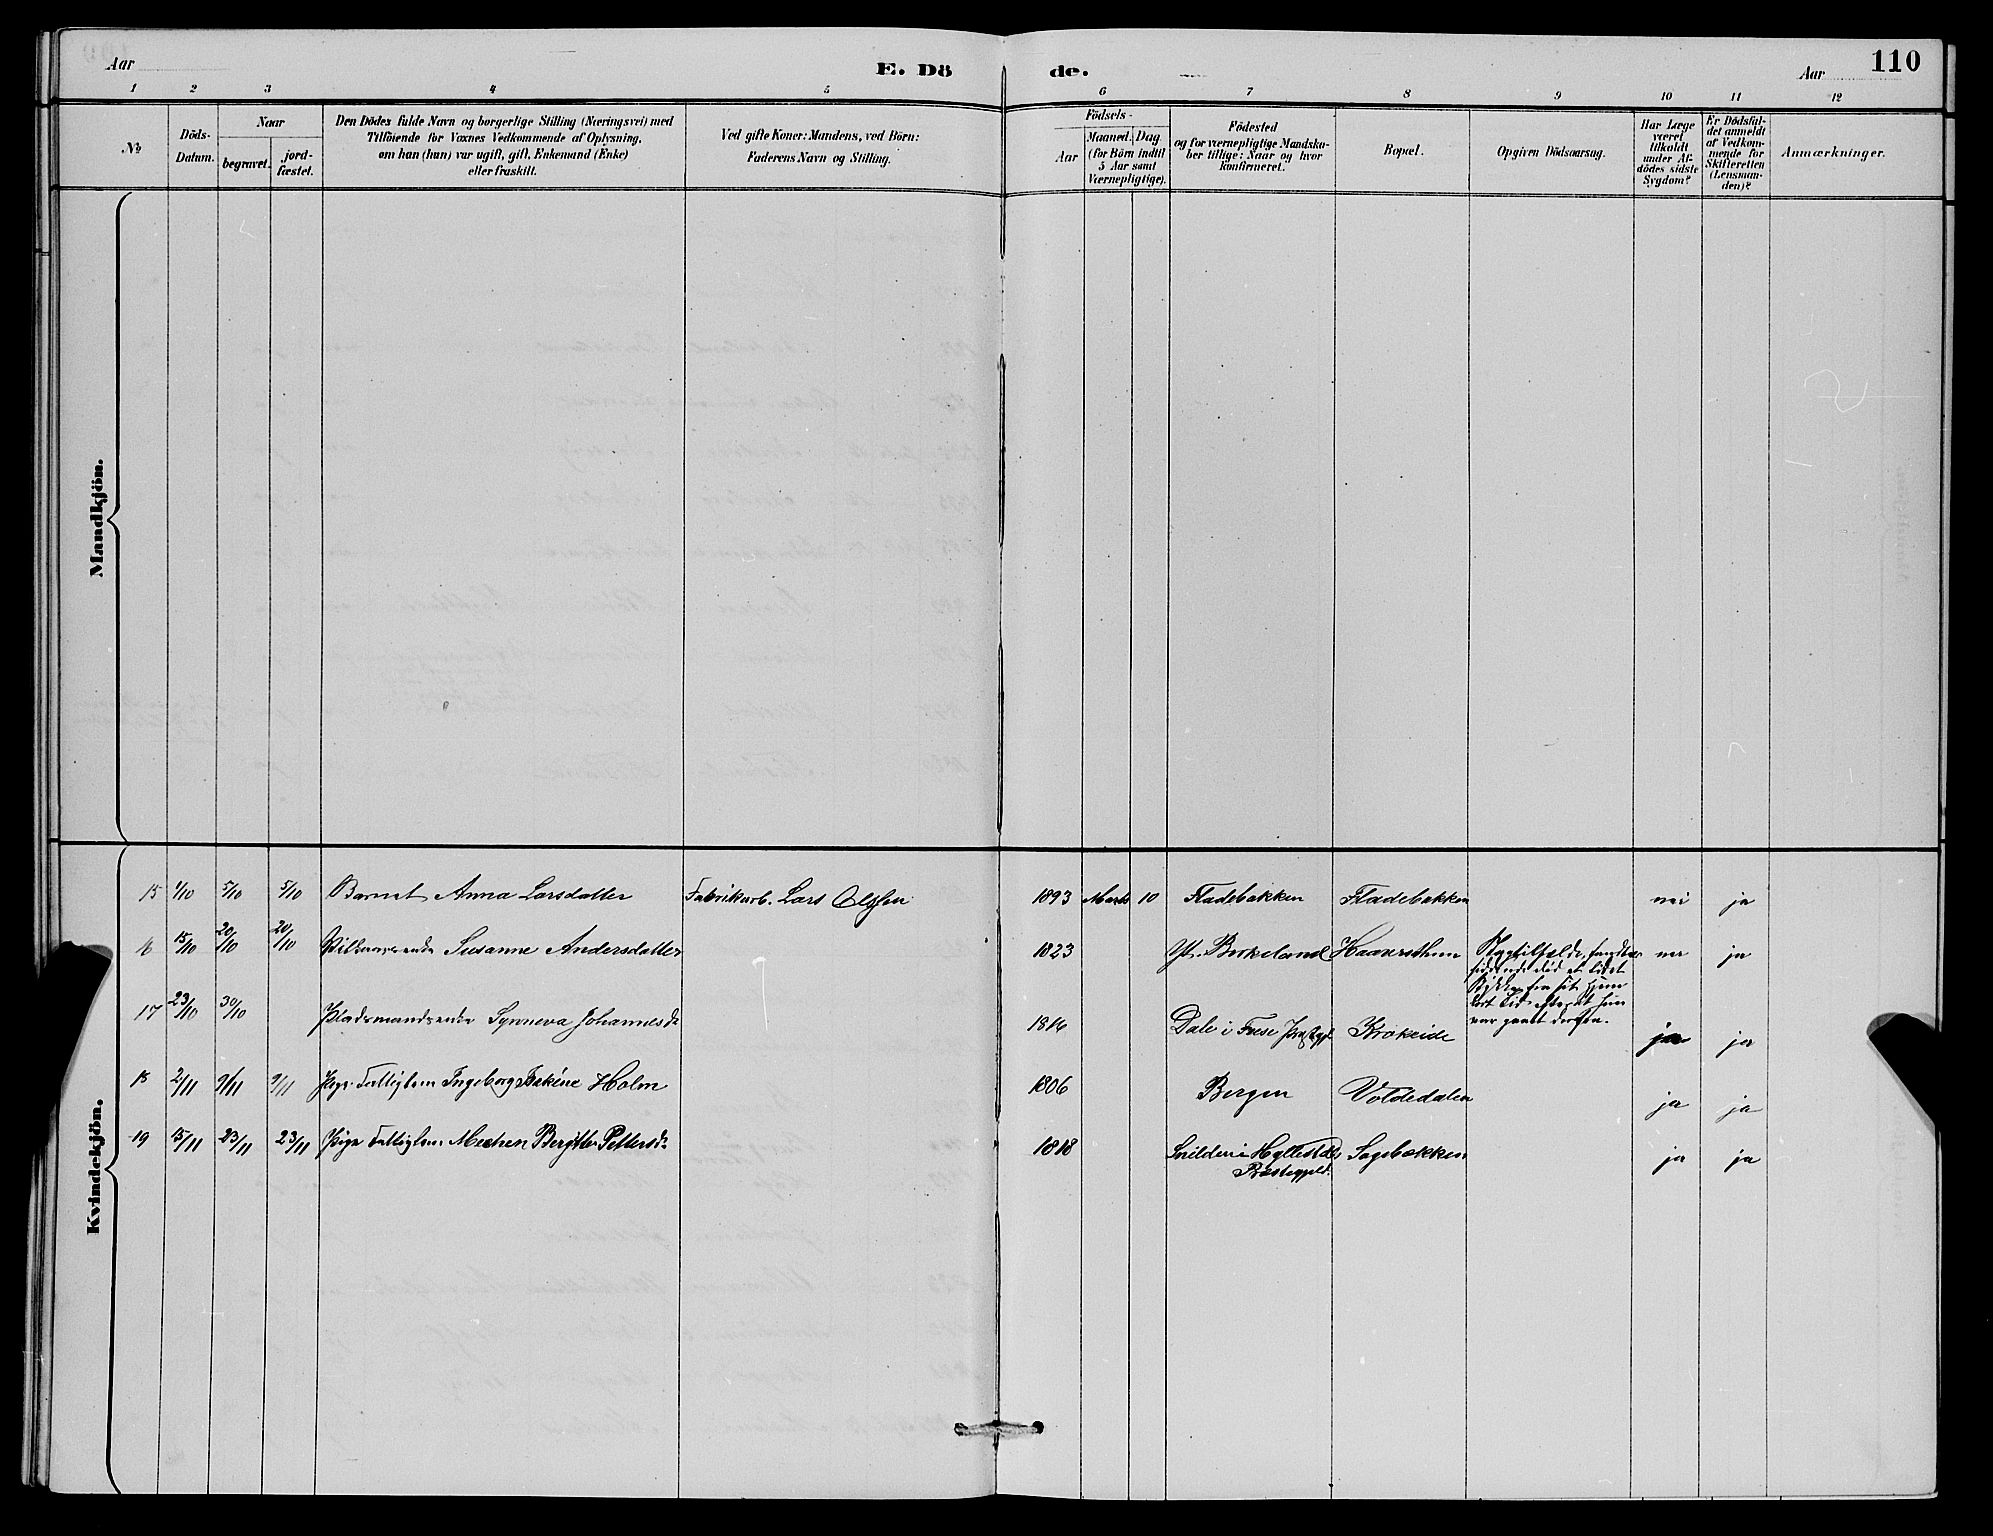 Aar
E. Dö
de.
Aar
110
1 2 3 4 5 6 7 8 9 10 11 12
No
Döds-
Datum.
Naar
begravet.
jord-
fæstet.
Den Dödes fulde Navn og borgerlige Stilling (Næringsvei) med
Tilföiende for Voxnes Vedkommende af Oplysning,
om han (hun) var ugift, gift, Enkemand (Enke)
eller fraskilt.
Ved gifte Koner: Mandens, ved Börn:
Faderens Navn og Stilling.
Födsels-
Aar
Maaned. Dag
(for Börn indtil
5 Aar samt
Værnepligtige).
Födested
og for værnepligtige Mandska-
ber tillige: Naar og hvor
konfirmeret.
Bopæl.
Opgiven Dödsaarsag.
Har Læge
været
tilkaldt
under Af-
dödes sidste
Sygdom?
Er Dödsfal-
det anmeldt
af Vedkom-
mende for
Skifteretten
(Lensman-
den)?
Anmærkninger.
Mandkjön.
Kvindekjön.
15 1/10 5/10 5/10 Barnet Anna Larsdatter Fabrikarb. Lars Olsen 1893 Marts 10 Fladebakken Fladebakken nei ja
16 15/10 20/10 20/10 Susanne Andersdatter 1823 Yt. Birkeland nei ja
17 23/10 30/10 Pladsmandsenke Synneva Johannesdr 1816 Dale i Fuse Præstgjd. Krokeide ja ja
var gaaet derfra.
18 2/11 9/11 9/11 Pige Fattiglem Ingeborg Holm 1806 Bergen Voldedalen ja ja
19 15/11 23/11 23/11 Pige Fattiglem Bergitte Pettersdr 1818 i Hyllestad Sagebakken ja ja
Præstegjeld.